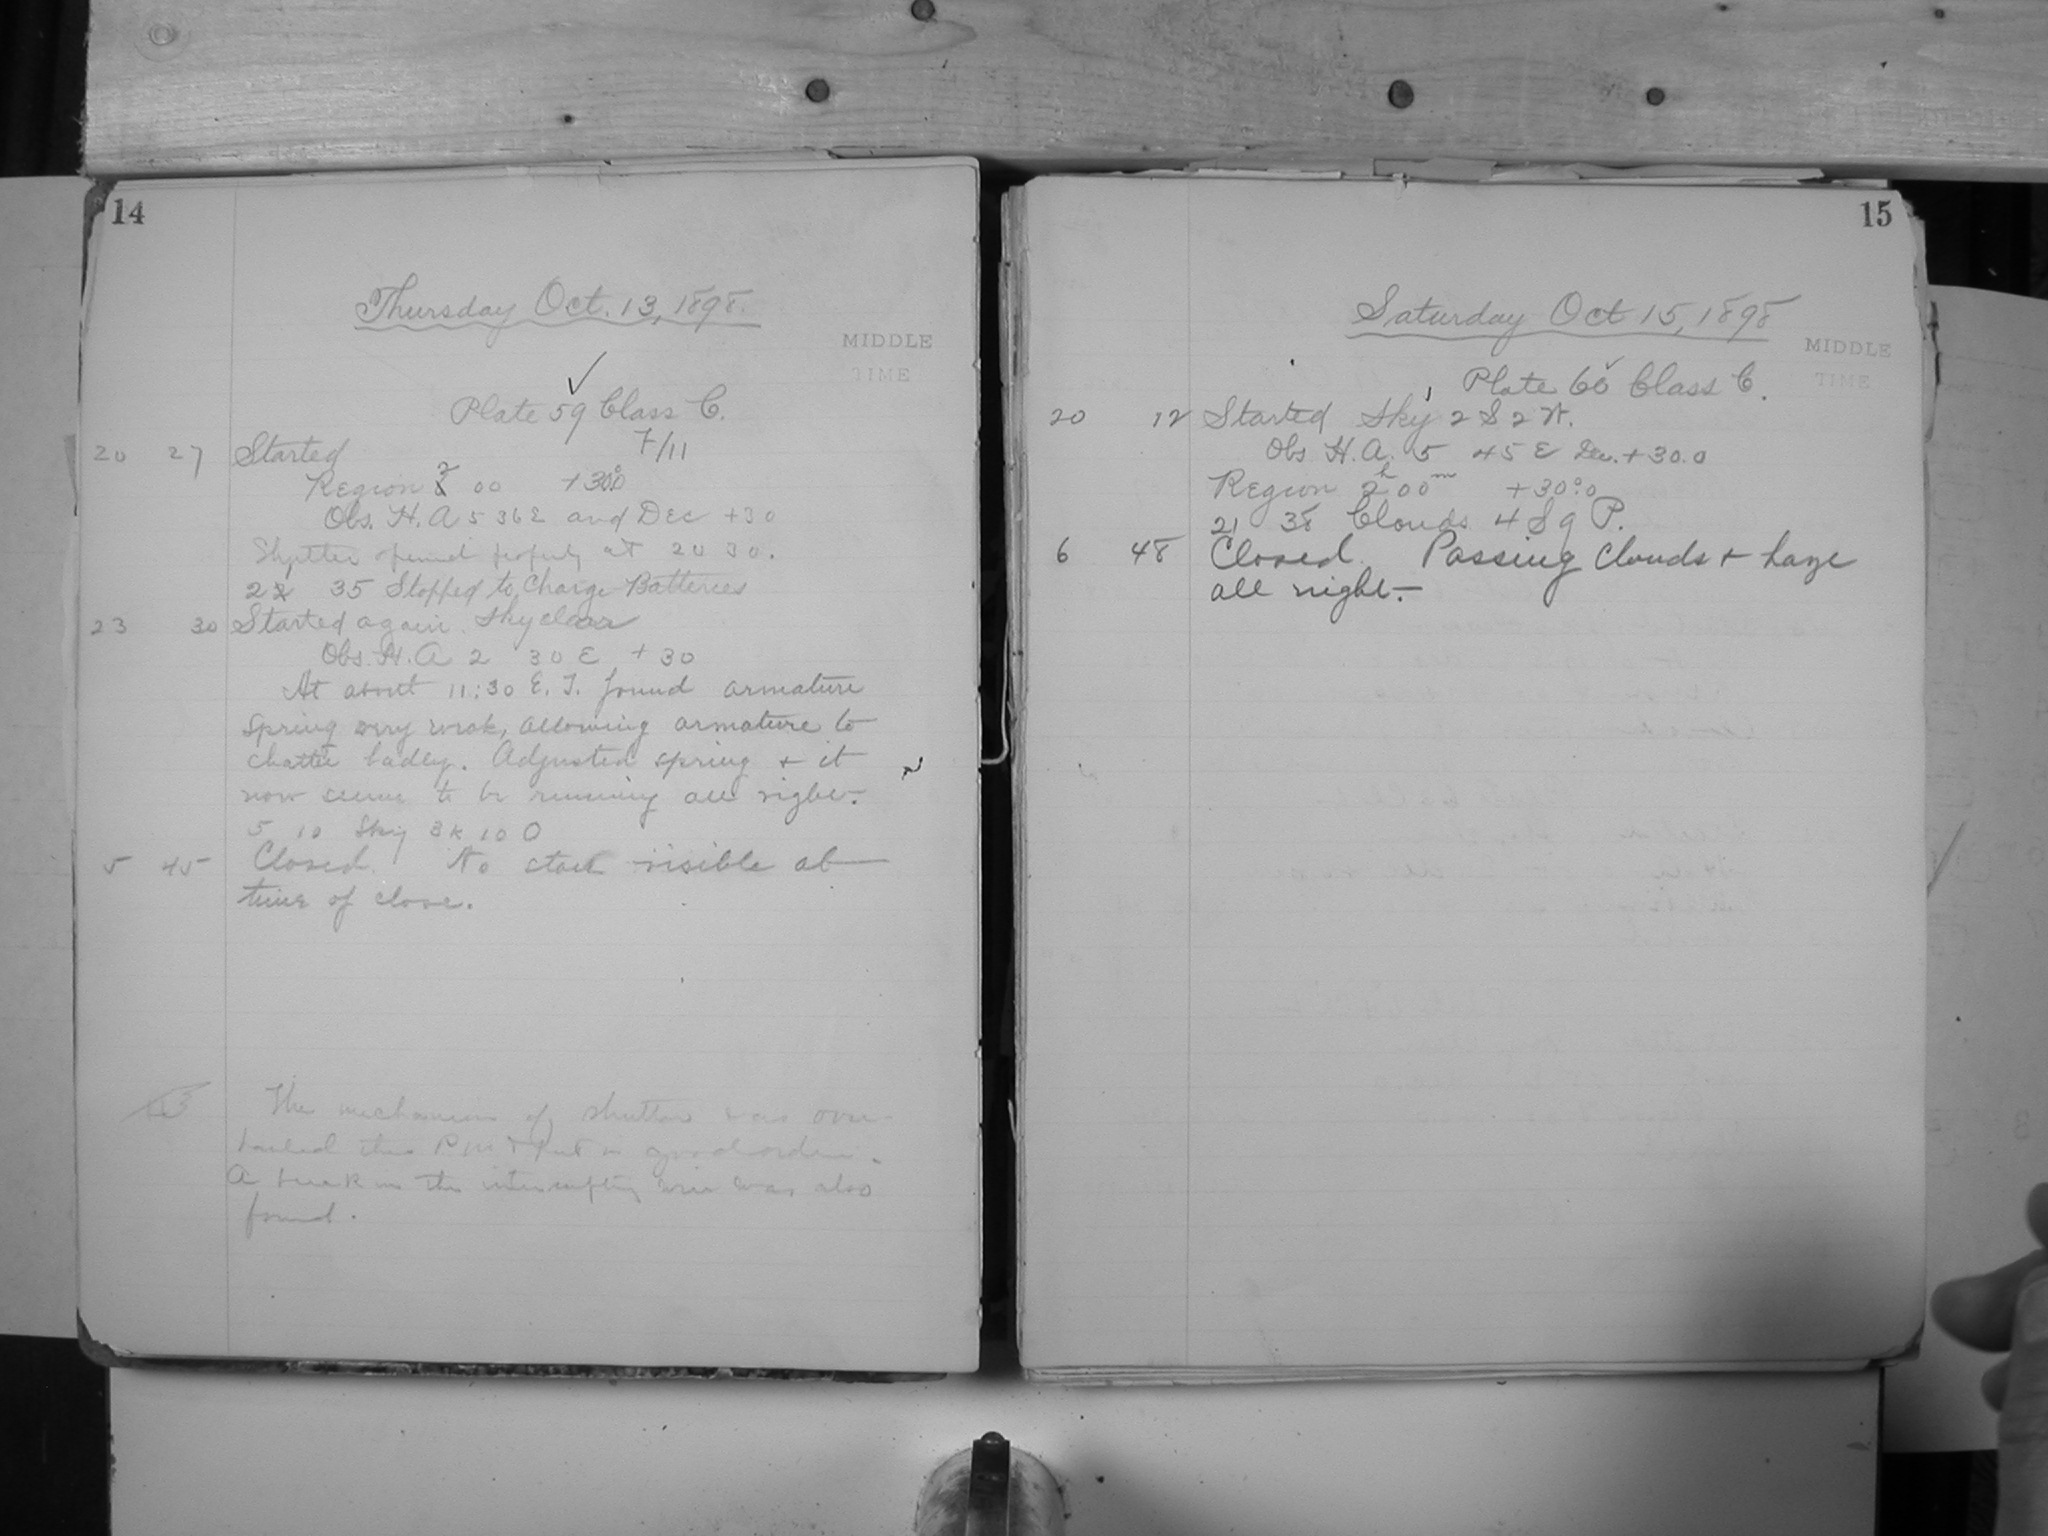 14
Thursday Oct. 13, 1898.
MIDDLE
TIME
Plate 59 Class C.
20 27 Started 7/11
Region 2 00 +30°0
Obs. H. A 5 36 E and Dec +30
Shutter opened properly at 20 30.
22 35 Stopped to Charge Batteries
23 30 Started again. Sky clear
Obs. H. A 2 30 E + 30
At about 11:30 E. T. found armature
spring very weak, allowing armature to
chatter badly. Adjusted spring + it
now seems to be running all right.
5 10 Sky 3 K 10 O
5 45 Closed. No stars visible at
time of close.
The mechanism of shutter was over
hauled this P M & put in good order.
A break in the interrupting wire was also
found.
15
Saturday Oct 15, 1898
MIDDLE
TIME
Plate 60 Class C.
20 12 Started Sky 2 S 2 N.
Obs H. A. 5 45 E Dec. + 30.0
Region 2h 00m +30°0
21 38 Clouds 4 S 9 P.
6 48 Closed. Passing Clouds + haze
all night.